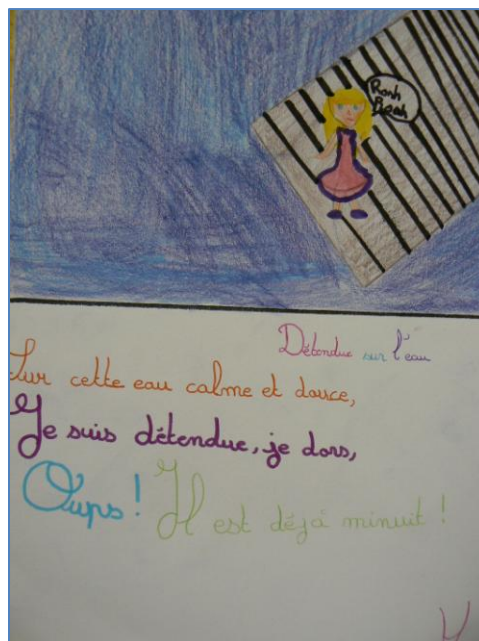 Ronh
Ronh
Détendue sur l'eau
Sur cette eau calme et douce,
Je suis détendue, je dors,
Oups! Il est déjà minuit !